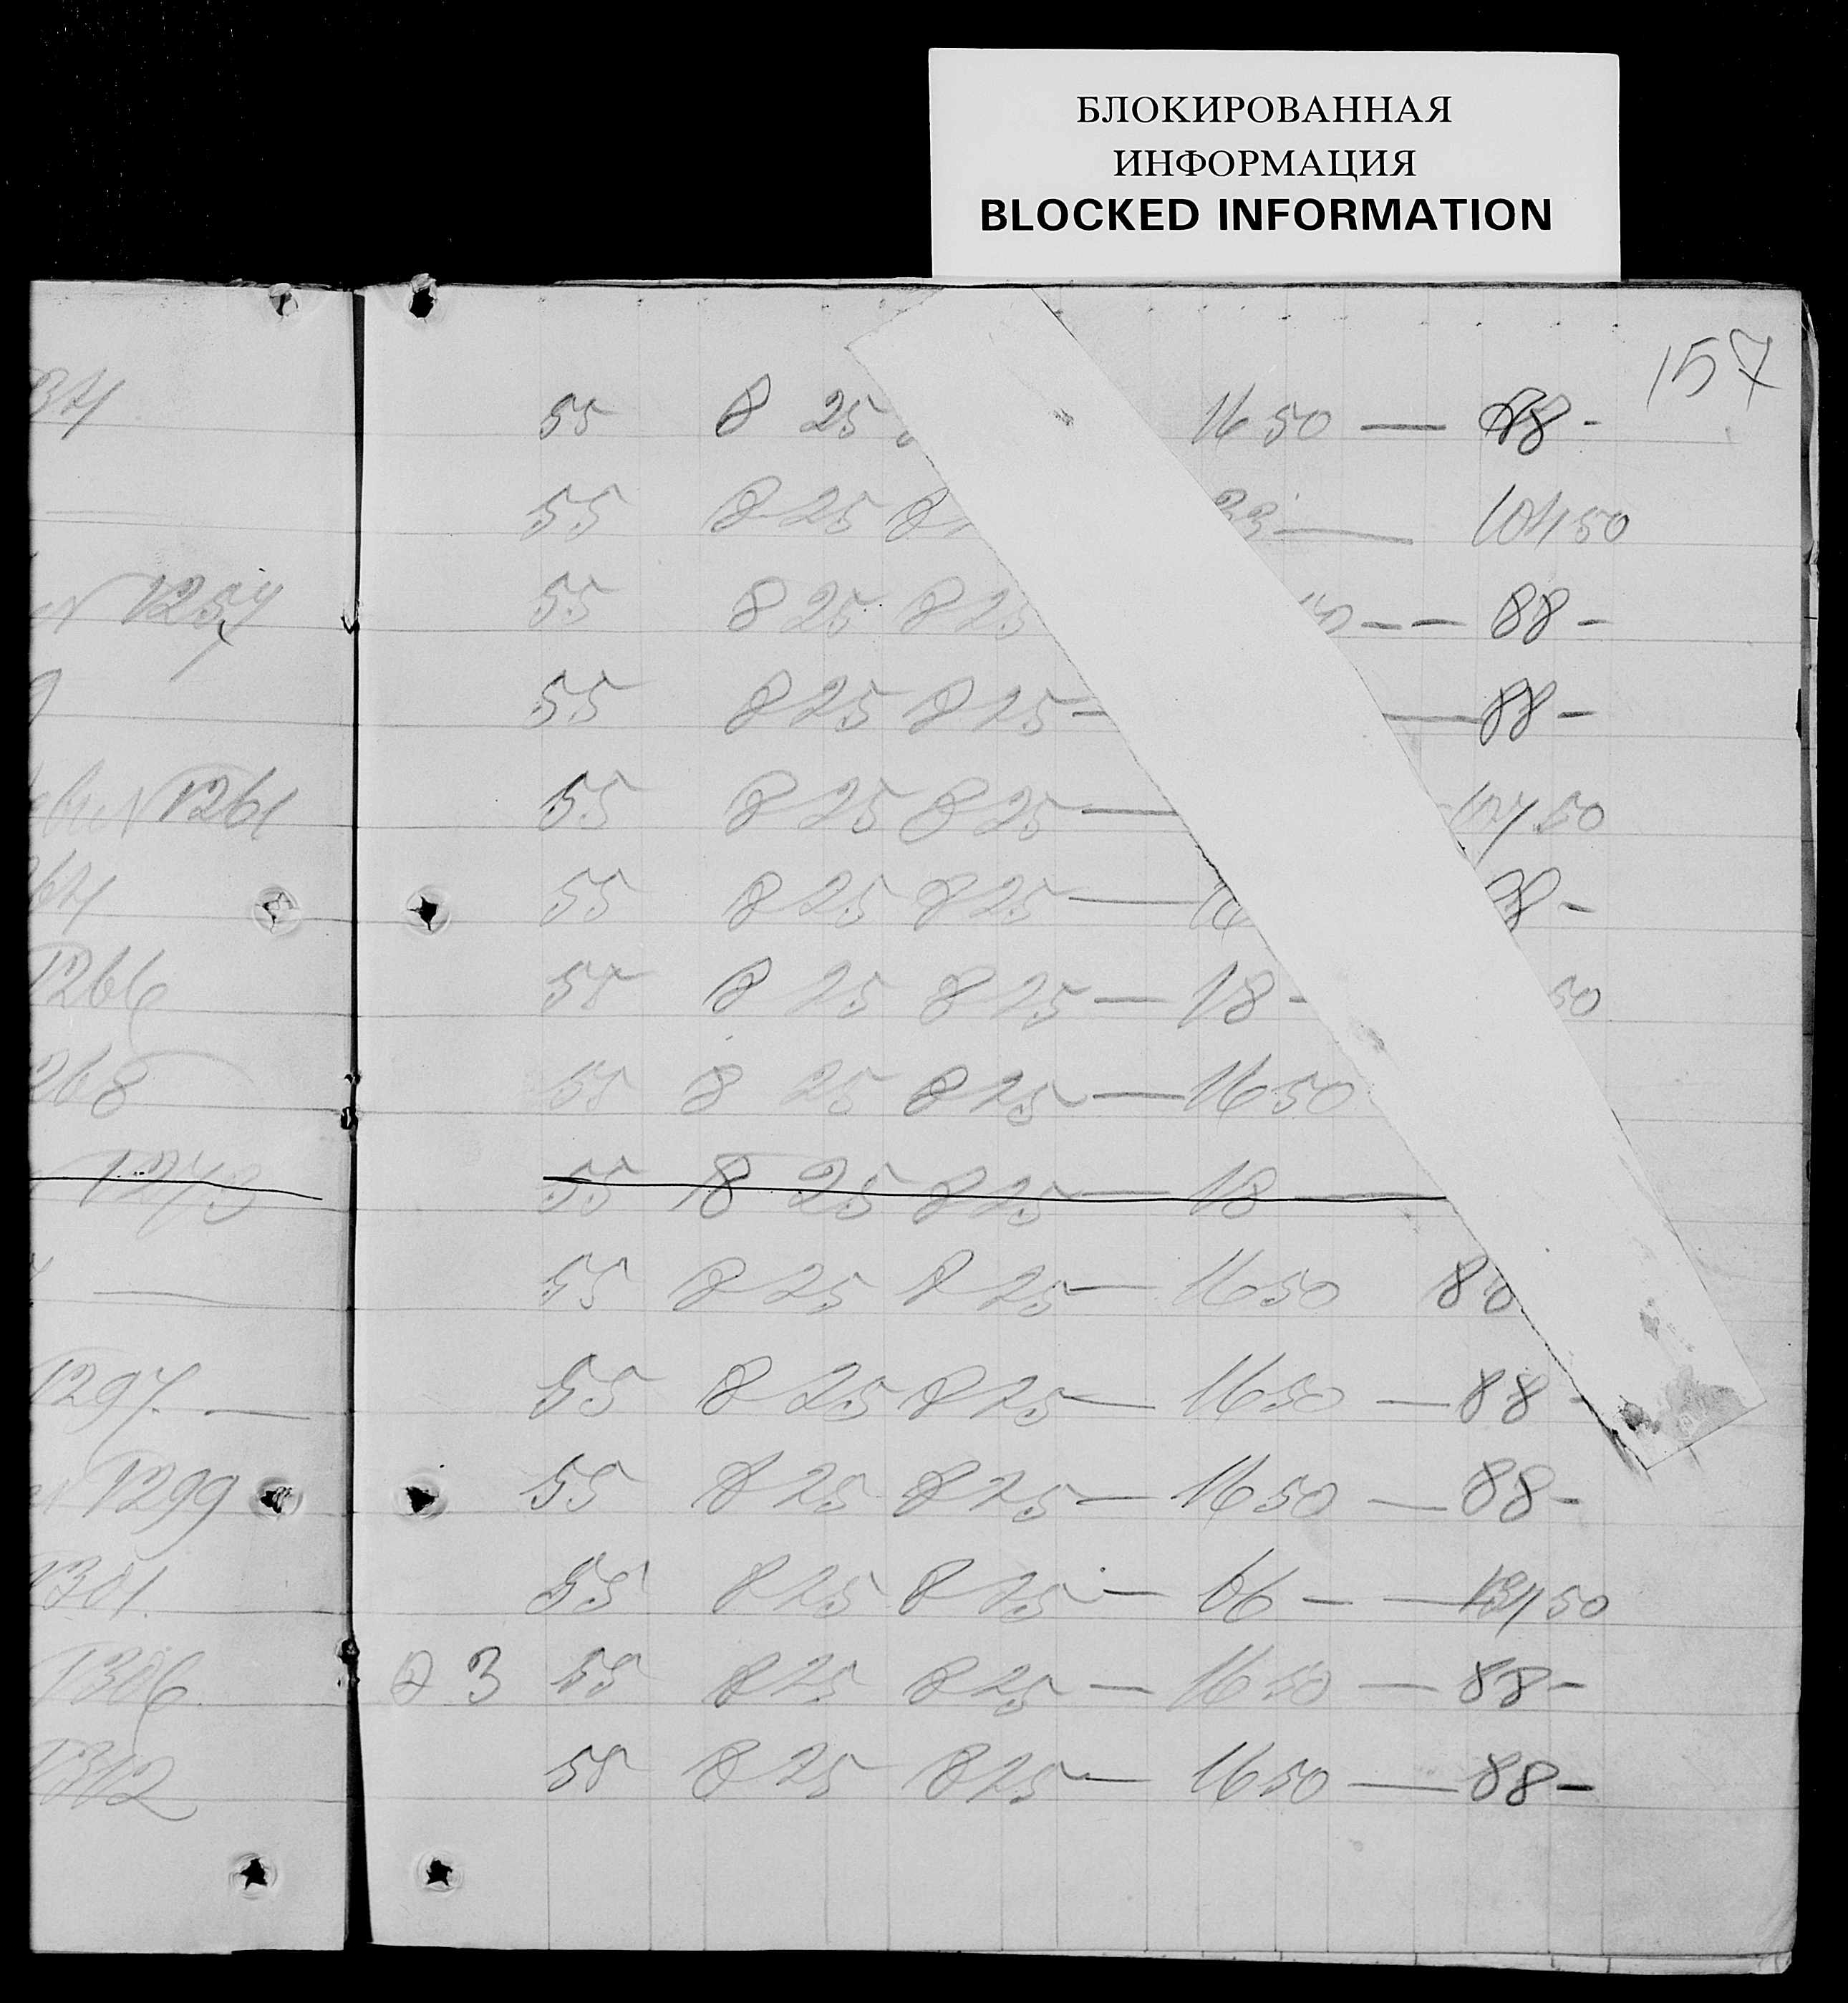 БЛОКИРОВАННАЯ
ИНФОРМАЦИЯ
BLOCKED INFORMATION
157
55 8 25 16 50 — 88 -
55 8 25 8 33 — 104 50
1257 55 8 25 8 25 - - 88 -
55 8 25 8 25 - — 88 -
1261 55 8 25 8 25 — 104 50
64 55 8 25 8 25 — 16 8 -
1266 55 8 25 8 25 — 18 - 50
268 55 8 25 8 25 — 16 50
1273 55 8 25 8 25 — 18 —
— 55 8 25 8 25 — 16 50 88
1297 — 55 8 25 8 25 — 16 50 — 88 -
1299 55 8 25 8 25 — 16 50 — 88 -
1301. 55 8 25 8 25 — 66 - — 50
1306 3 55 8 25 8 25 — 16 50 — 88 -
1312 55 8 25 8 25 — 16 50 — 88 -